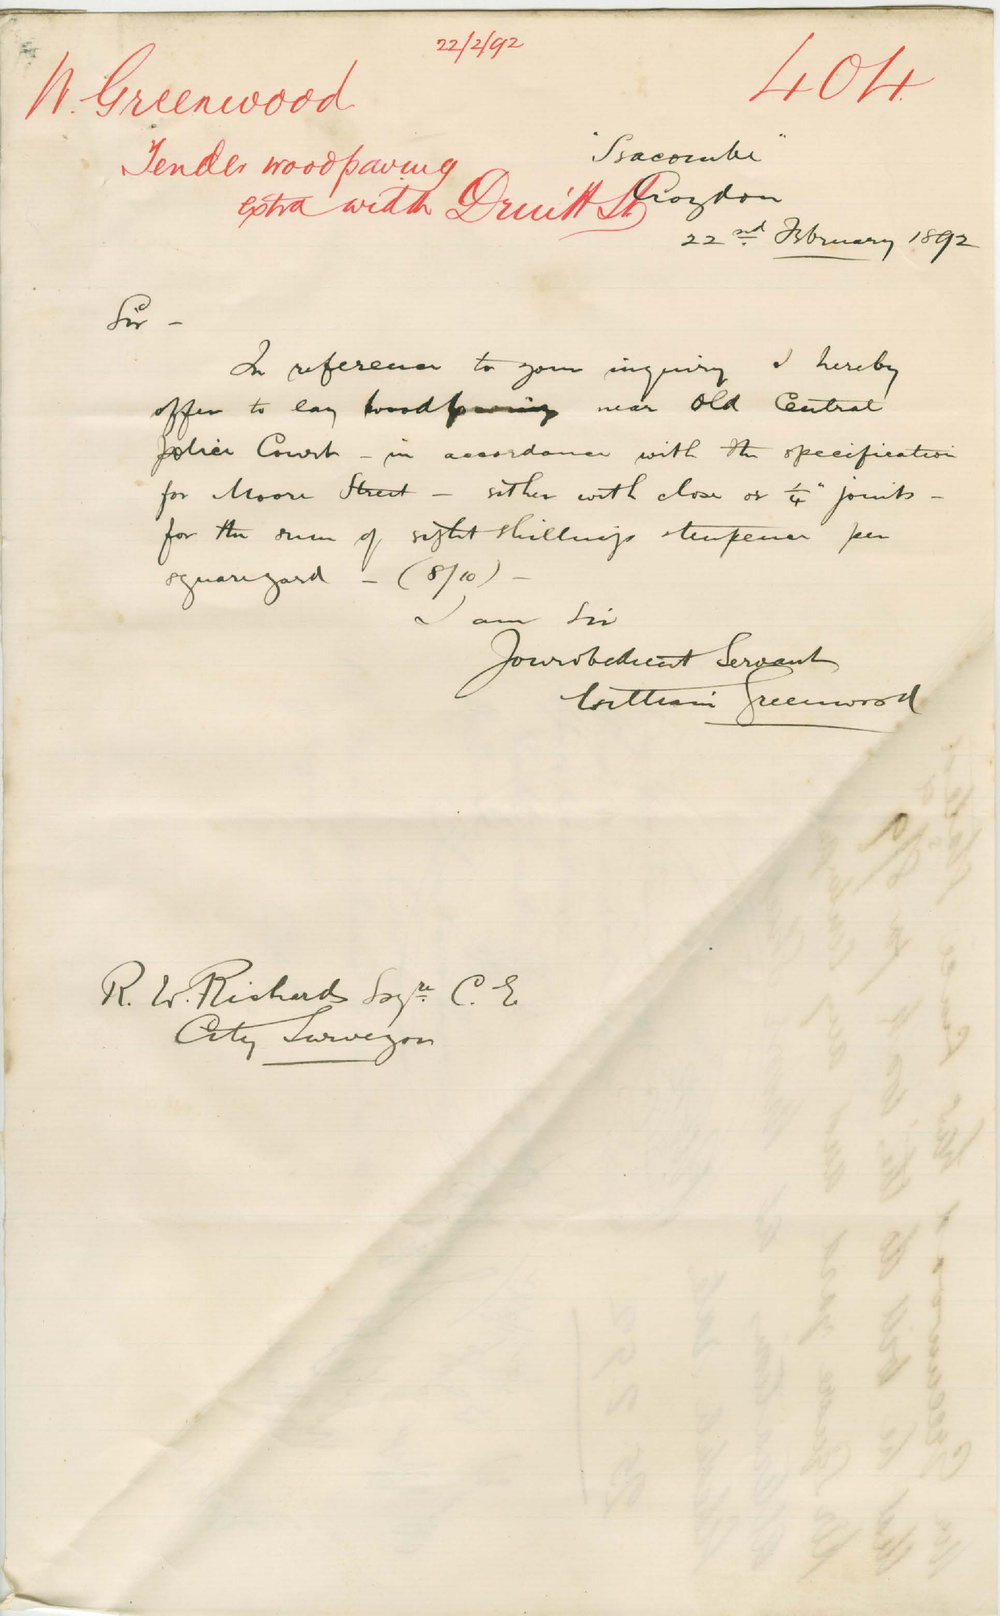 22/2/92
W. Greenwood
404
Tender woodpaving
extra width Druitt St
"Isacombe"
Croydon
22nd February 1892
Sir -
In reference to your inquiry I hereby
offer to lay woodpaving near Old Central
Police Court - in accordance with the specification
for Moore Street - either with close or 1/4" joints -
for the sum of eight shillings & tenpence per
square yard - (8/10) -
I am Sir
Your obedient Servant
William Greenwood
R. W. Richards Esqre. C. E
City Surveyor